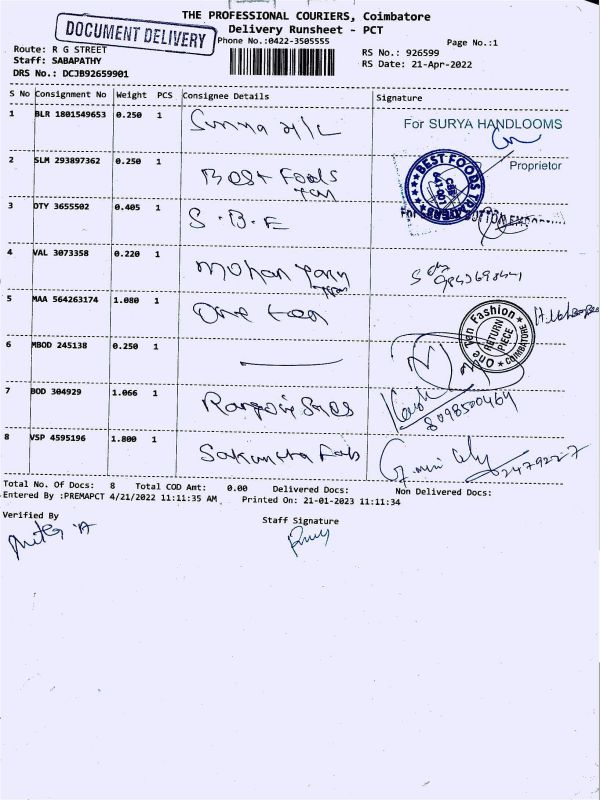 THE PROFESSIONAL COURIERS, Coimbatore
DOCUMENT DELIVERY
Delivery Runsheet - PCT
Phone No.:0422-3505555
Page No.:1
Route: R G STREET
RS No.: 926599
Staff: SABAPATHY
RS Date: 21-Apr-2022
DRS No.: DCJB92659901
S No Consignment No Weight PCS Consignee Details Signature
1 BLR 1801549653 0.250 1
For SURYA HANDLOOMS
Proprietor
2 SLM 293897362 0.250 1 Best Foods
BEST FOODS
3 DTY 3655502 0.405 1 S.B.E
For
4 VAL 3073358 0.220 1 Mohan
5 MAA 564263174 1.080 1 One ten
One Ten Fashion
RETURN PIECE
COIMBATORE
6 MBOD 245138 0.250 1
7 BOD 304929 1.066 1
8098500464
8 VSP 4595196 1.800 1
Total No. Of Docs: 8 Total COD Amt: 0.00 Delivered Docs: Non Delivered Docs:
Entered By :PREMAPCT 4/21/2022 11:11:35 AM Printed On: 21-01-2023 11:11:34
Verified By
Staff Signature